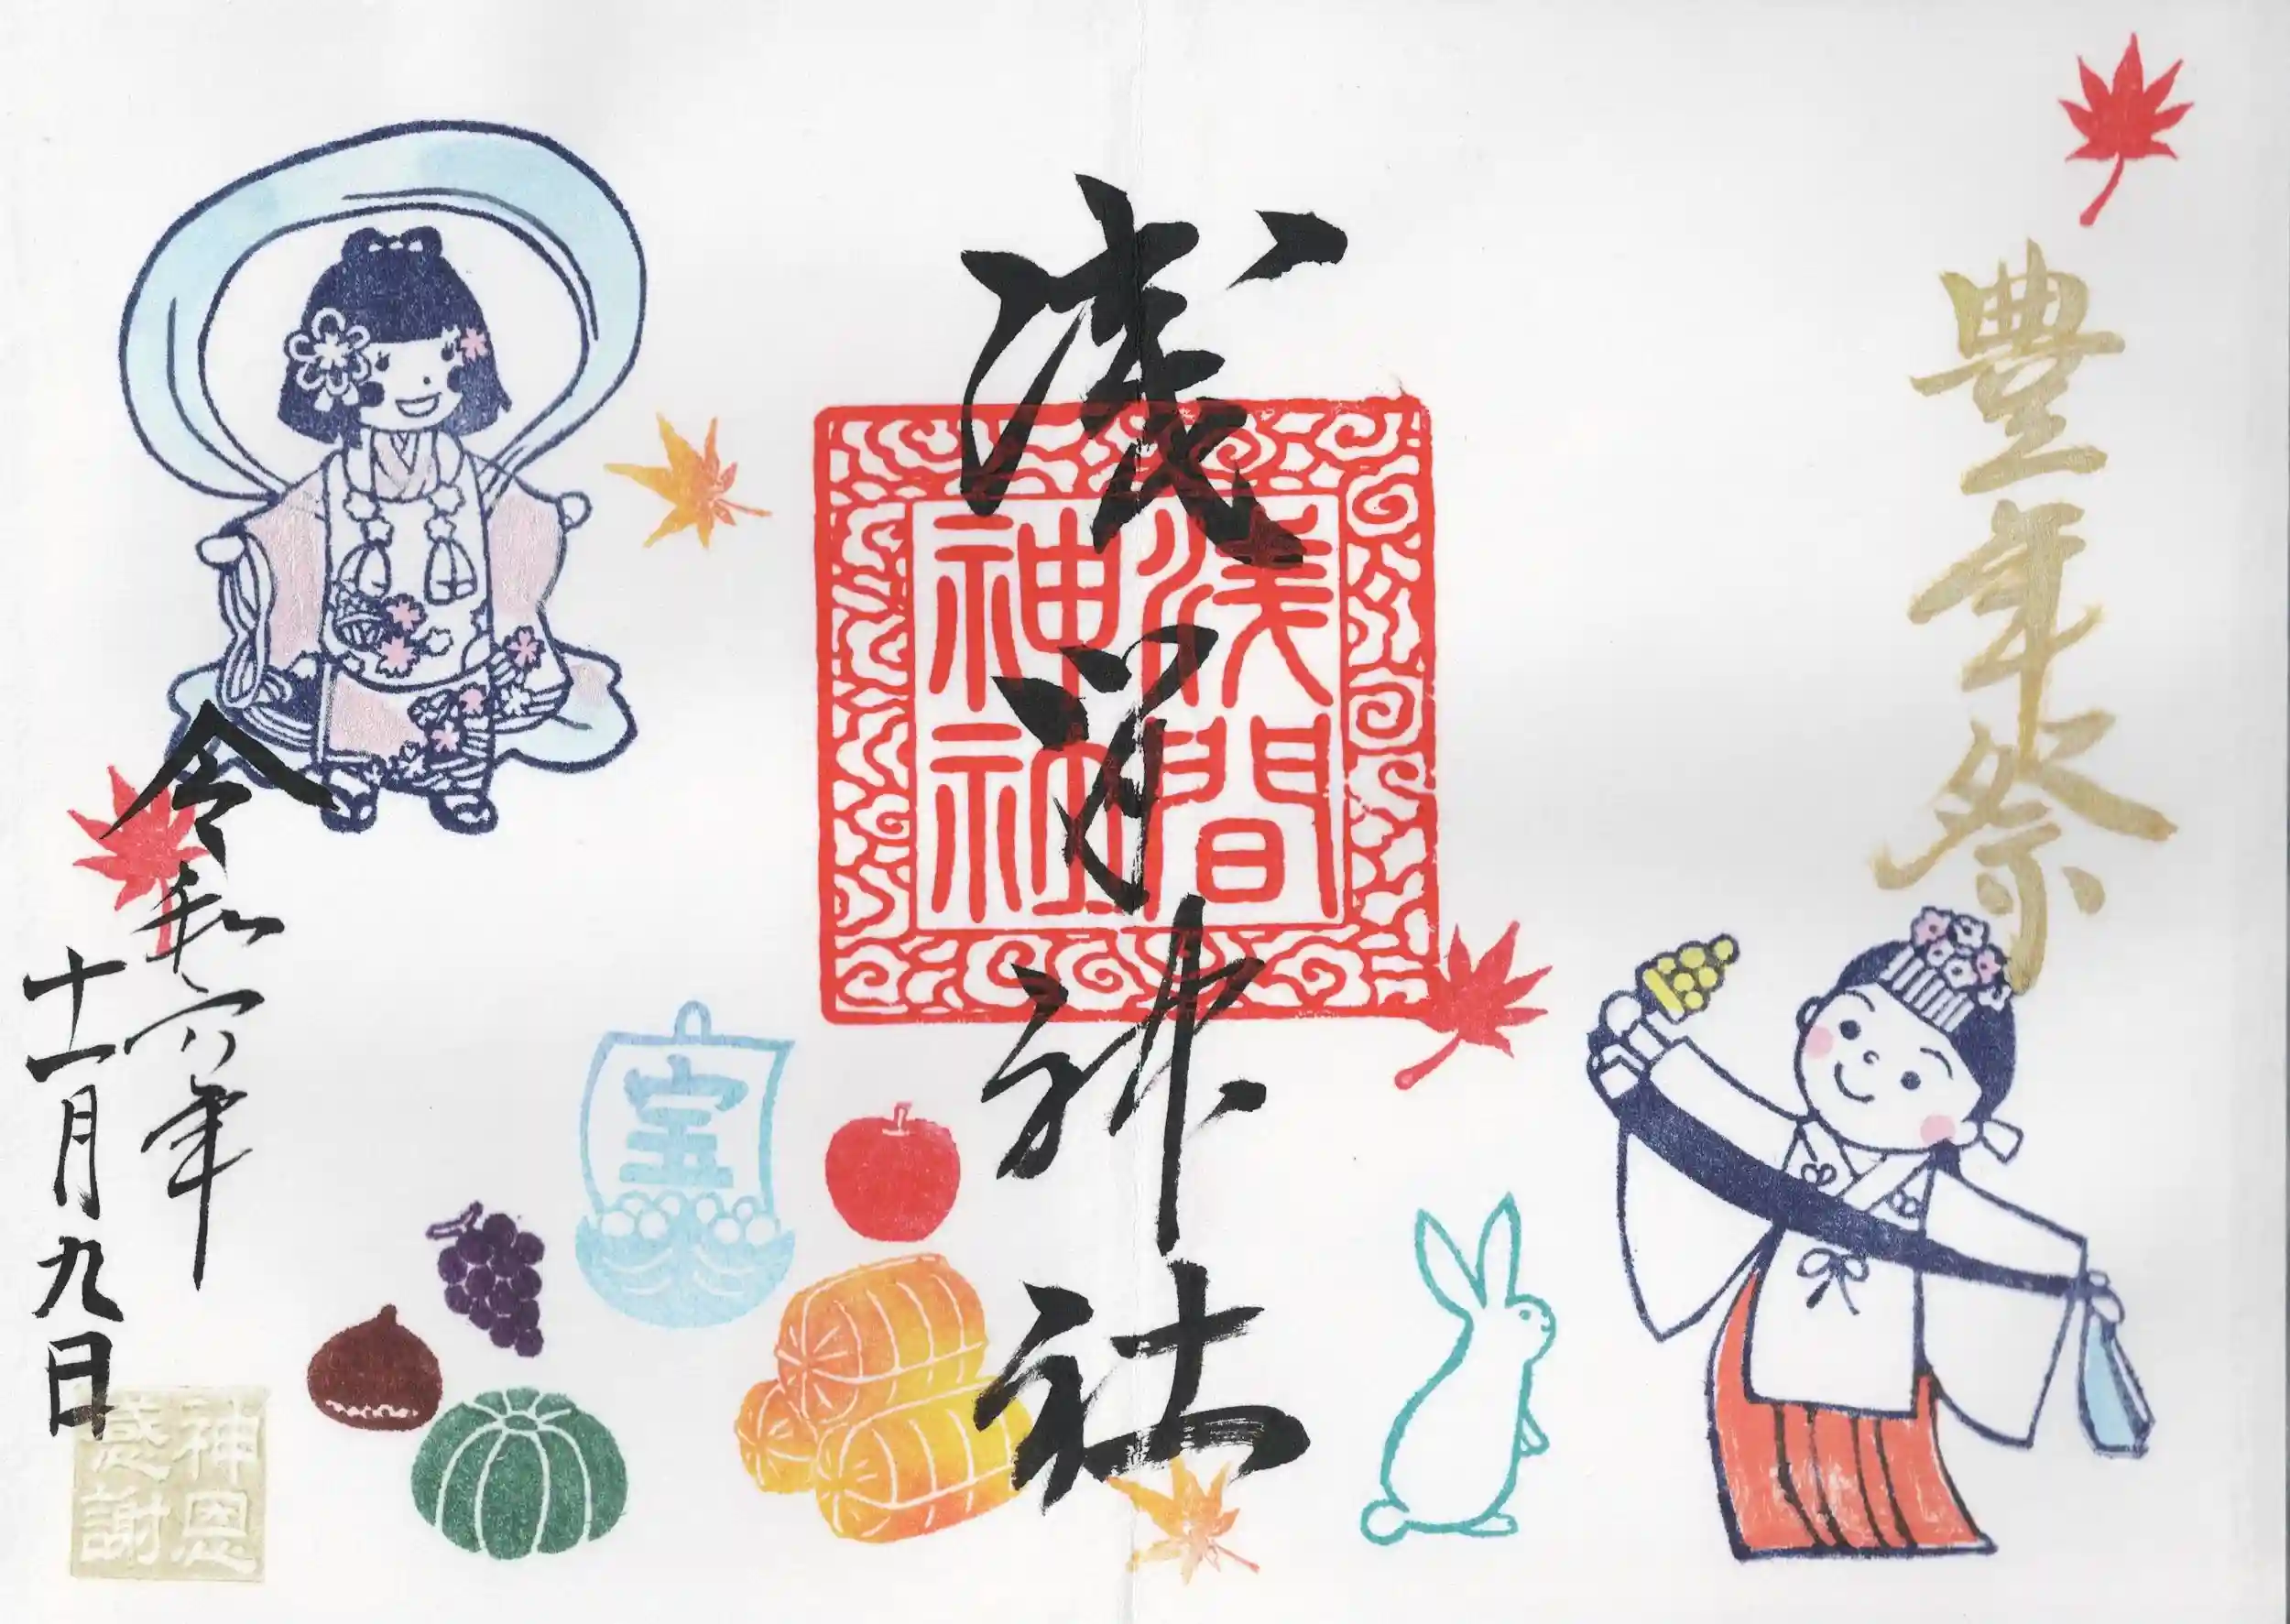 豊年祭
浅間神社
浅間
神社
宝
令和六年
十一月九日
神恩
感謝